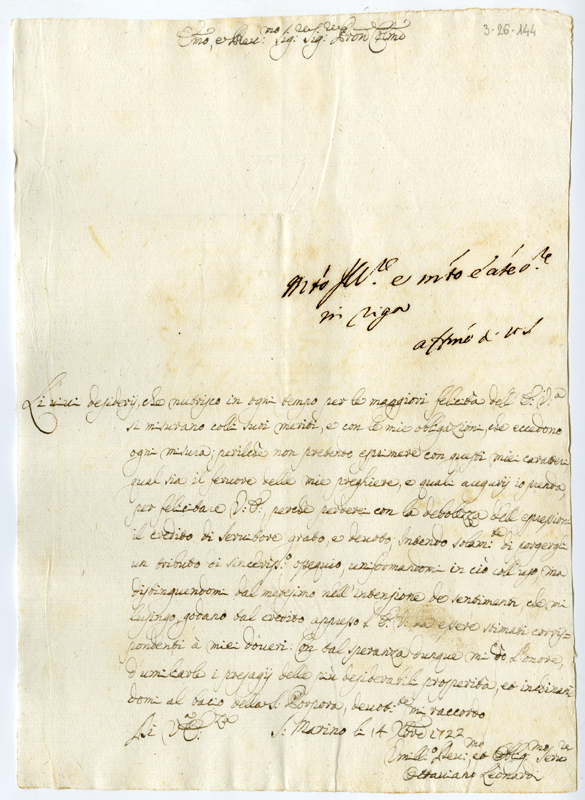 3-26-144
Emo, e Rev:mo Sig: Sig: Pron Colmo
e
in riga
affmo di VS
Li vivi desiderij, che nutrisco in ogni tempo per le maggiori felicità dell' E. V.a
si misurano colli suoi meriti, e con le mie obligazioni, che eccedono
ogni misura; perilchè non pretendo esprimere con questi miei caratteri
qual sia il fervore delle mie preghiere, e quali augurij io
per felicitare V: E:, perchè perderei con la debolezza dell espressioni
il credito di servitore grato, e devoto. Intendo solam:te di porgergli
un tributo di sinceriss:o ossequio uniformandomi in ciò coll' uso, ma
distinguendomi dal medesimo nell' intensione de sentimenti, che mi
lusingo, godano dal credito appresso l' E. V. da essere stimati corris=
pondenti à miei doveri. Con tal speranza dunque mi dò l'onore,
d'umiliarle i presagij delle più desiderabili prosperità, ed inchinan
domi al bacio della S. Porpora, devot:te mi raccordo
Di V: E:
S: Marino li 14 Xbre 1722
Umili:o Dev:mo et Oblig:mo Serv:re
Ottaviano Leonardi